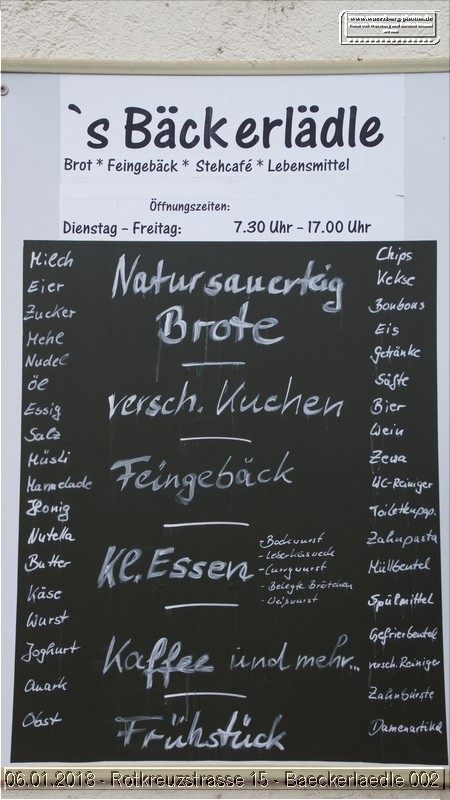 www.wuerzburg-photos.de
`s Bäckerlädle
Brot * Feingebäck * Stehcafé * Lebensmittel
Öffnungszeiten:
Dienstag – Freitag: 7.30 Uhr – 17.00 Uhr
Milch
Eier
Zucker
Mehl
Nudel
Öl
Essig
Salz
Müsli
Marmelade
Honig
Nutella
Butter
Käse
Wurst
Joghurt
Quark
Obst
Natursauerteig
Brote
versch. Kuchen
Feingebäck
Kl. Essen
- Bockwurst
- Leberkäswecke
- Currywurst
- Belegte Brötchen
- Weißwurst
Kaffee und mehr...
Frühstück
Chips
Kekse
Bonbons
Eis
Getränke
Säfte
Bier
Wein
Zewa
WC-Reiniger
Toilettenpap.
Zahnpasta
Müllbeutel
Spülmittel
Gefrierbeutel
versch. Reiniger
Zahnbürste
Damenartikel
06.01.2018 - Rotkreuzstrasse 15 - Baeckerlaedle 002